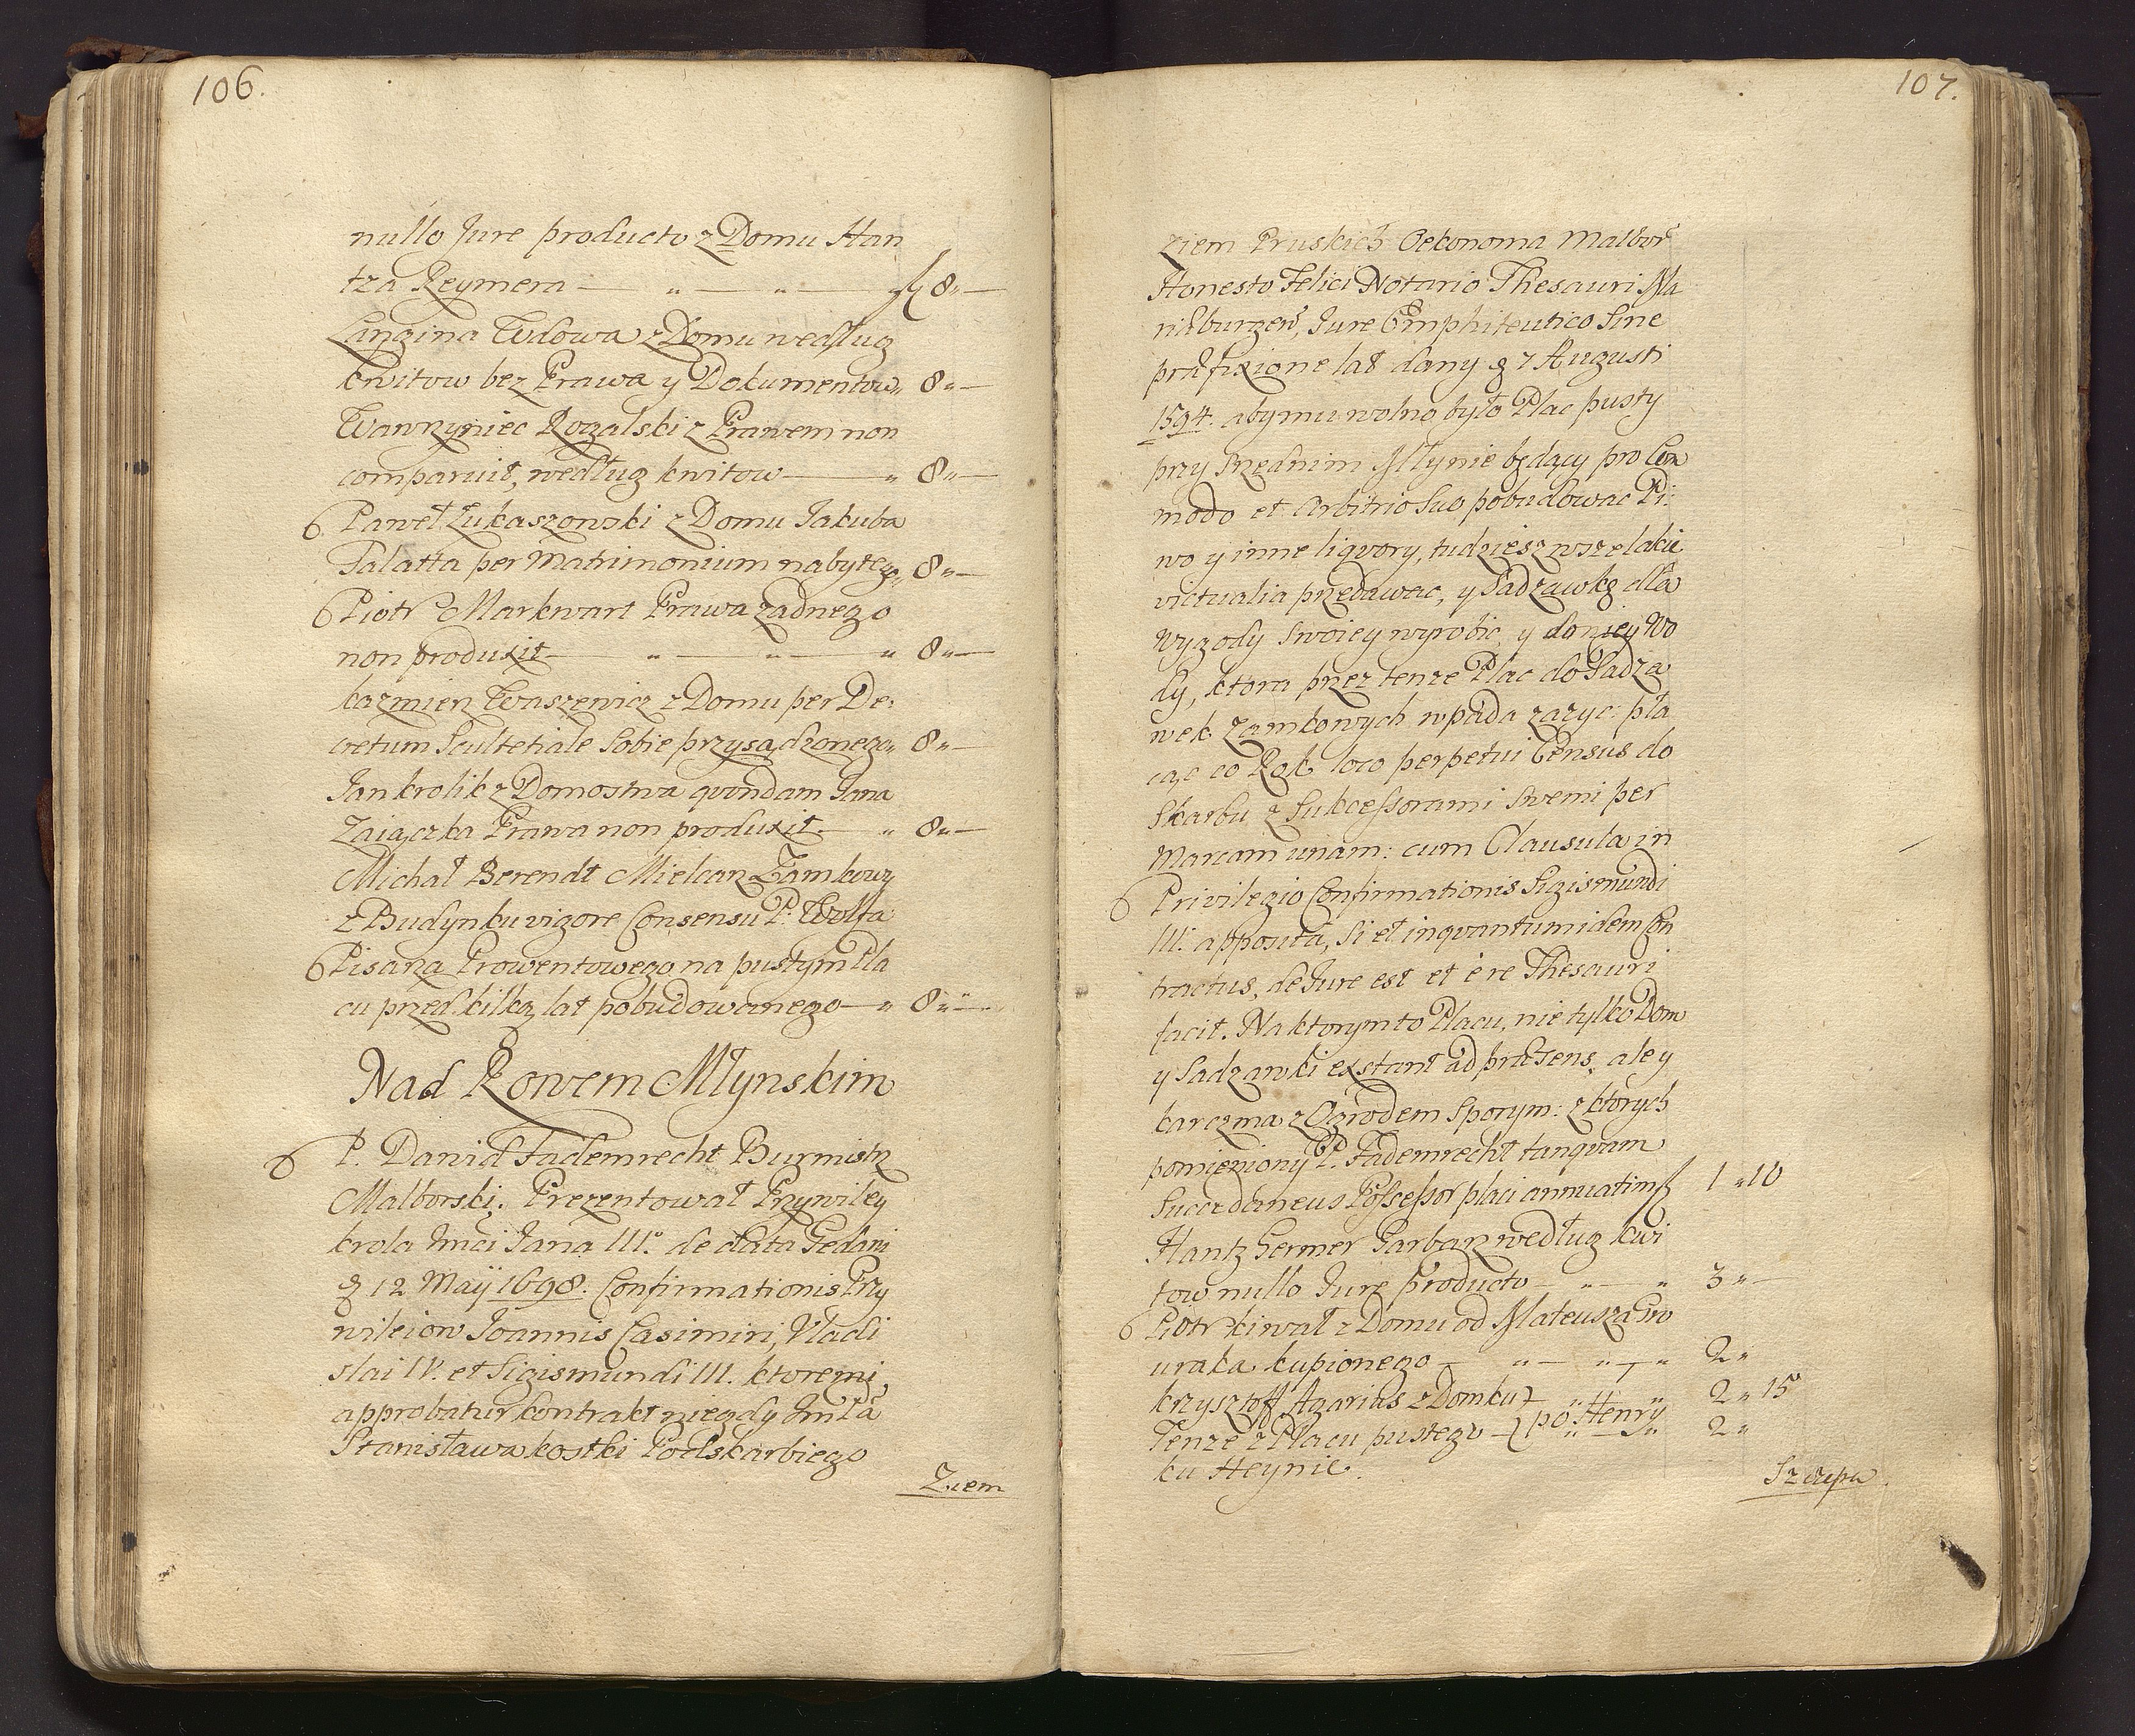 106.
nullo Jure producto z Domu Han
tza Reymera — „ — „ — f 8 „ —
Langina Wdowa z Domu według
kwitow bez Prawa y Dokumentow „ 8 „ —
Wawrzyniec Rogalski z Prawem non
comparuit, według kwitow — „ 8 „ —
Paweł Łukaszowski z Domu Jakuba
Falatta per Matrimonium nabytego „ 8 „ —
Piotr Markwart Prawa zadnego
non produxit — „ — „ — „ 8 „ —
kazmierz Waszewicz z Domu per De:
cretum Scultetiale Sobie przysądzonego „ 8 „ —
Jan krolik z Domostwa qvondam Jana
Zaiączka Prawa non produxit. — „ 8 „ —
Michał Berendt Mielcarz Zamkowy
z Budynku vigore Consensu P. Wolffa
Pisarza Prowentowego na pustym Pla
cu przed kilką lat pobudowanego — „ 8 „ —
Nad Rowem Młynskim
P. Dawid Fademrecht Burmistrz
Malborski. Prezentował Przywiley
krola Jmći Jana III.° de data Gedani
12 Maÿ 1698. Confirmationis Przy
wileiow Joannis Casimiri, Vladi
slai IV. et Sigismundi III. ktoremi
approbatur kontrakt niegdy
Stanisława kostki Podskarbiego
Ziem
107.
Ziem Pruskich Oekonoma Malbor
Honesto Felici Notario Thesauri Ma
riæburgen, Jure Emphiteutico Sine
præfixione lat dany 7 Augusti
1594. aby mu wolno było Plac pusty
przy Srzednim Młynie będący pro Com
modo et Arbitrio Suo pobudować Pi:
wo y inne liqvory, tudziesz wszelakie
victualia przedawac, y Sadzawkę dla
wygody Swoiey wyrobic, y do niey Wo
dy, ktora przez tenze Plac do Sadza
wek Zamkowych wpada zazyc: pła
cąc co Rok loco perpetui Census do
Skarbu z Sukcessorami Swemi per
Marcam unam: cum Clausula in
Privilegio Confirmationis Sigismundi
III. apposita, Si et inqvantum idem Con
tractus, de Jure est et è re Thesauri
facit. Na ktorym to Placu, nie tylko Dom
y Sadzawki exstant ad præsens, ale y
karczma z Ogrodem Sporym: z ktorych
pomieniony P. Fademrecht tanqvam
Succedaneus Possessor płaci annuatim f 1 „ 10
Hantz Germer Garbarz według kwi
tow nullo Jure producto — „ — „ 3 „ —
Piotr kirwat z Domu od Mateusza
uraka kupionego — „ — „ — „ 2 „
krzysztoff Agarius z Domku } „ „ 2 „ 15
Tenze z Placu pustego — } po Henry „ „ 2 „
ku Heynie.